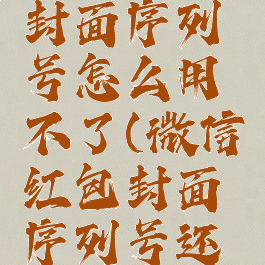 封面序列
号怎么用
不了(微信
红包封面
序列号还